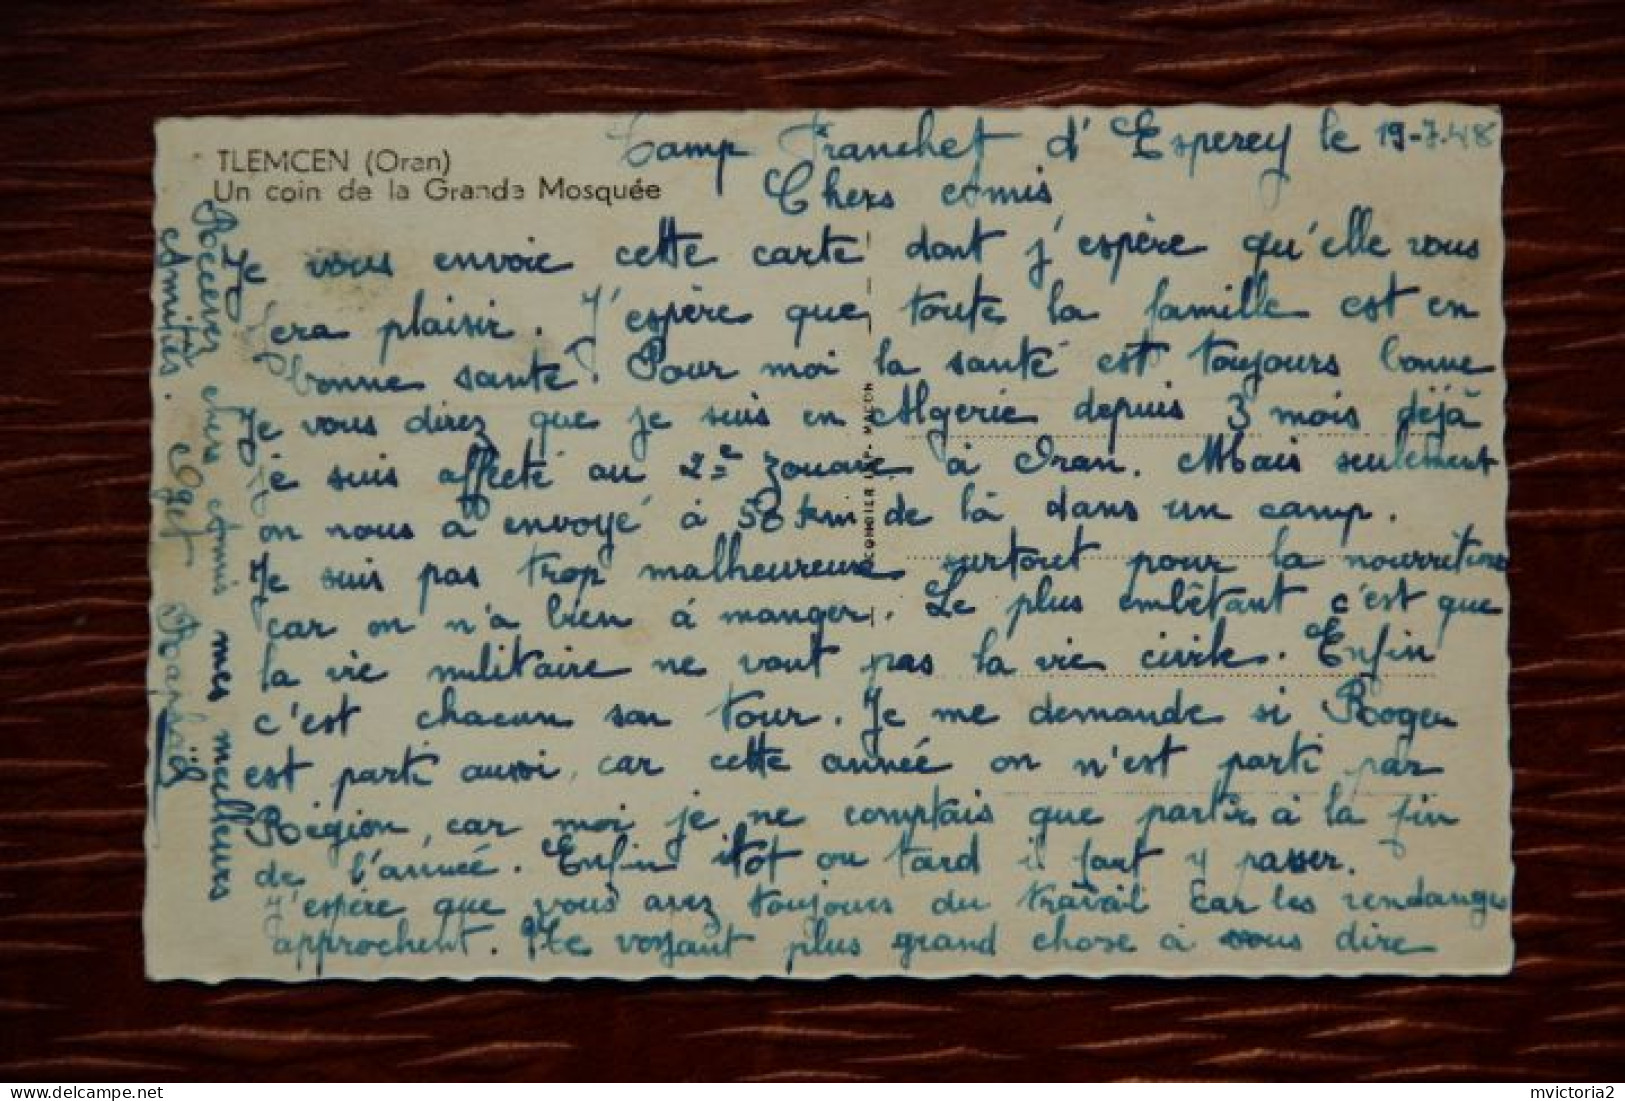 TLEMCEN (Oran)
Un coin de la Grande Mosquée
Camp Franchet d'Esperey le 19-7-48
Chers Amis
Je vous envoie cette carte dont j'espère qu'elle vous
fera plaisir. J'espère que toute la famille est en
bonne santé. Pour moi la santé est toujours bonne
Je vous direz que je suis en Algerie depuis 3 mois déjà
je suis affecté au 2e zouave à Oran. Mais seulement
on nous à envoyé à 50 km de là dans un camp.
Je suis pas trop malheureuse surtout pour la nourriture
car on n'a bien à manger. Le plus embêtant c'est que
la vie militaire ne vaut pas la vie civile. Enfin
c'est chacun son tour. Je me demande si Roger
est parti aussi, car cette année on n'est parti par
Région, car moi je ne comptais que partir à la fin
de l'année. Enfin tôt ou tard i faut y passer.
J'espère que vous avez toujours du travail car les vendanges
approchent. Ne voyant plus grand chose à vous dire
Recever chers Amis mes meilleurs
Amitiés. Raphaël
COMBIER IMP. MACON